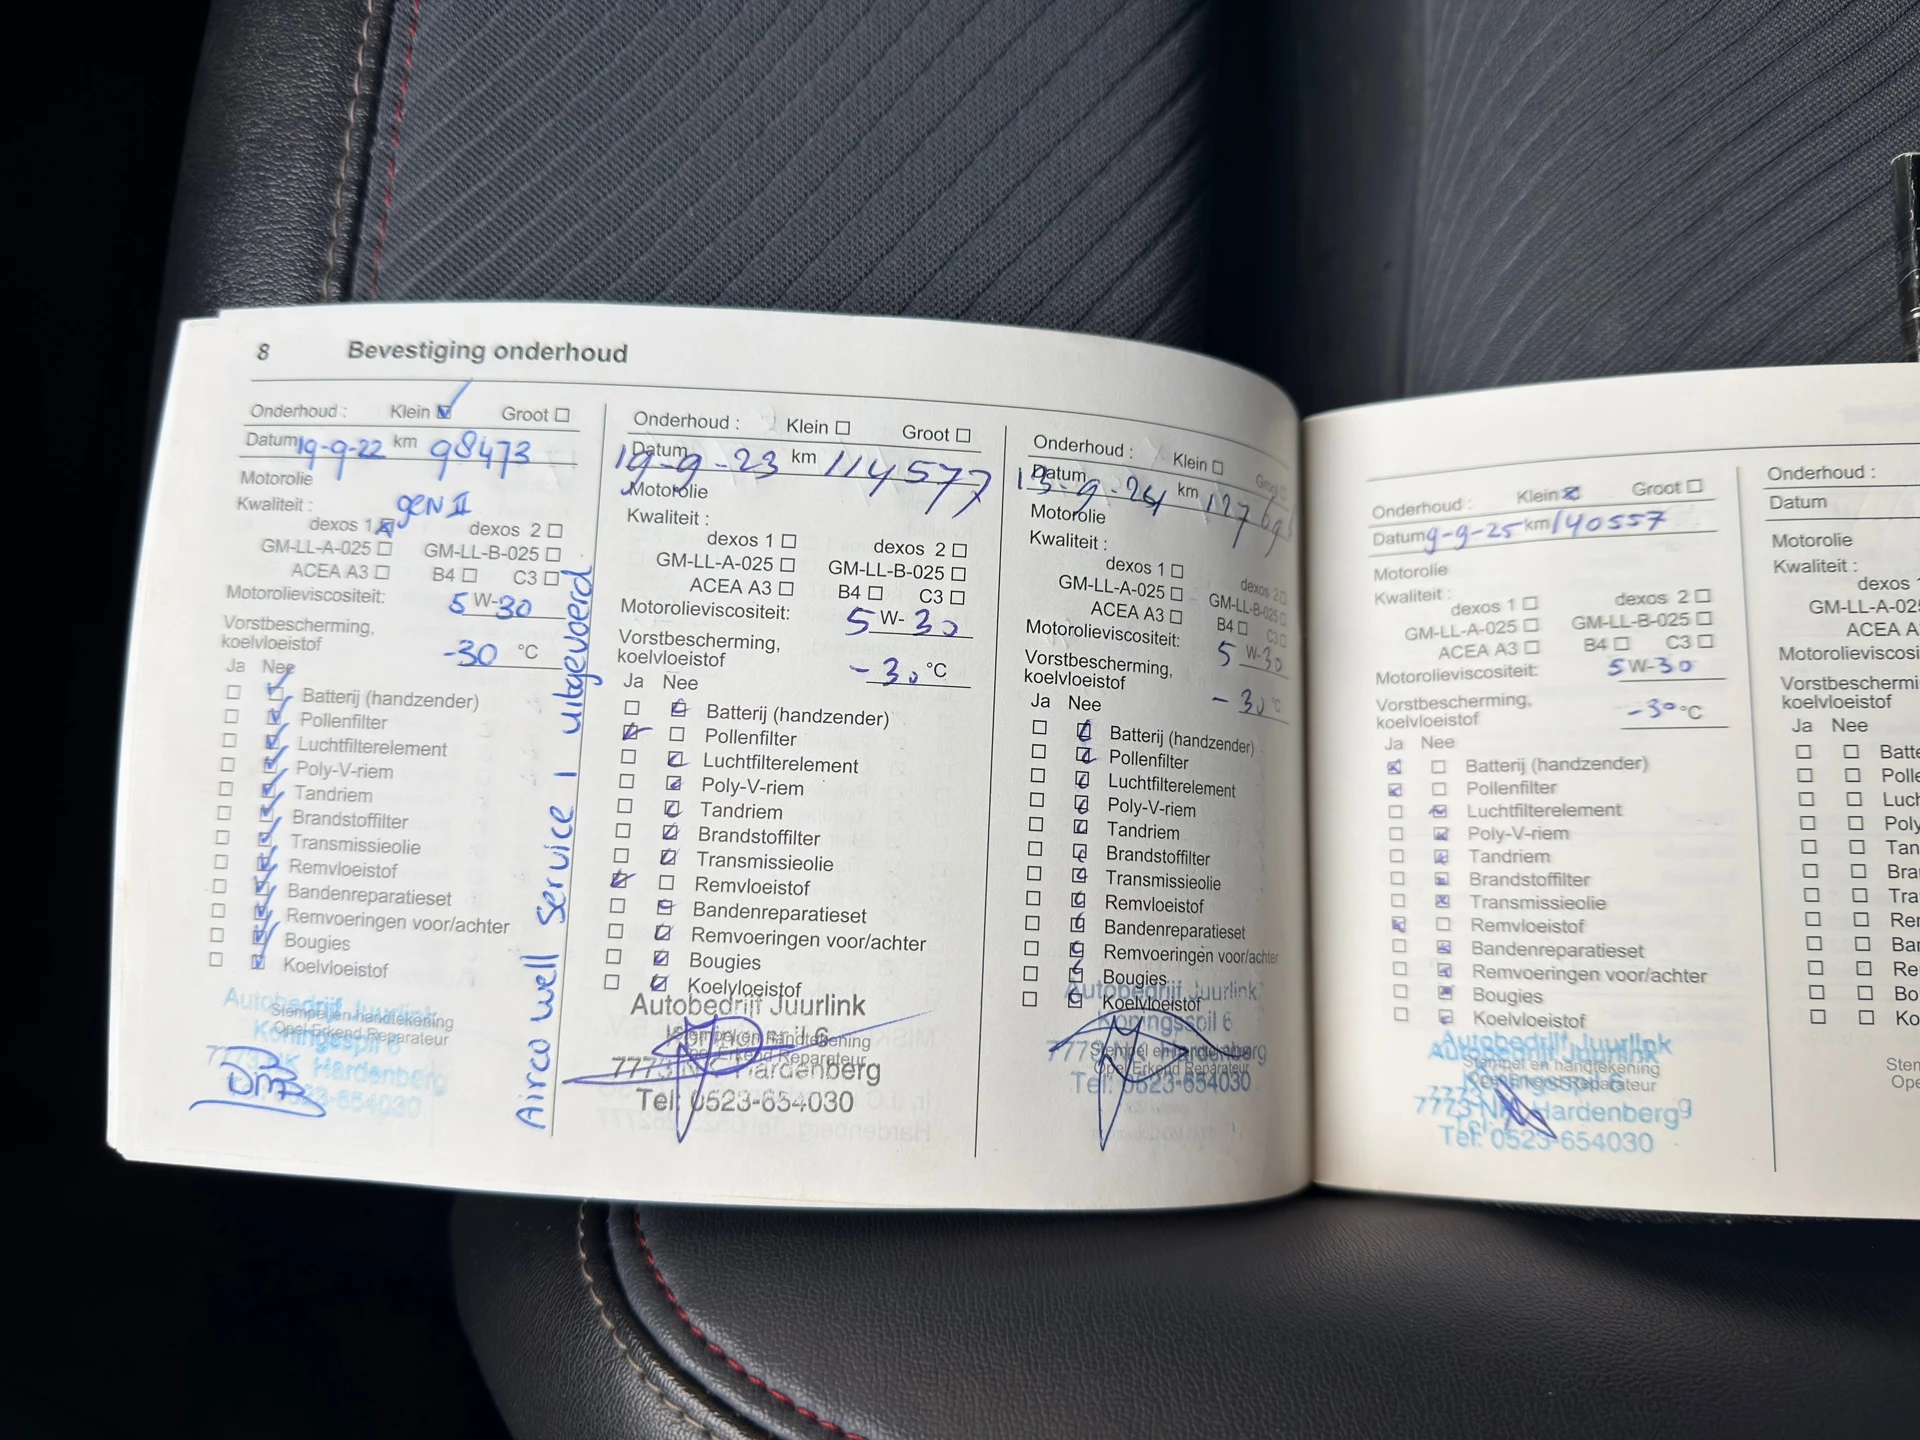 8 Bevestiging onderhoud
Onderhoud : Klein Groot
Datum 19-9-22 km 98473
Motorolie
Kwaliteit : gen II
dexos 1 dexos 2
GM-LL-A-025 GM-LL-B-025
ACEA A3 B4 C3
Motorolieviscositeit: 5 W-30
Vorstbescherming,
koelvloeistof -30 °C
Ja Nee
Batterij (handzender)
Pollenfilter
Luchtfilterelement
Poly-V-riem
Tandriem
Brandstoffilter
Transmissieolie
Remvloeistof
Bandenreparatieset
Remvoeringen voor/achter
Bougies
Koelvloeistof
Autobedrijf Juurlink
Stempel en handtekening
Opel Erkend Reparateur
Koningsspil 6
7773 NK Hardenberg
0523-654030
Airco well Service 1 uitgevoerd
Onderhoud : Klein Groot
Datum 19-9-23 km 114577
Motorolie
Kwaliteit :
dexos 1 dexos 2
GM-LL-A-025 GM-LL-B-025
ACEA A3 B4 C3
Motorolieviscositeit: 5 W-30
Vorstbescherming,
koelvloeistof -30 °C
Ja Nee
Batterij (handzender)
Pollenfilter
Luchtfilterelement
Poly-V-riem
Tandriem
Brandstoffilter
Transmissieolie
Remvloeistof
Bandenreparatieset
Remvoeringen voor/achter
Bougies
Koelvloeistof
Autobedrijf Juurlink
Stempel en handtekening
Opel Erkend Reparateur
7773 NK Hardenberg
Tel: 0523-654030
Onderhoud : Klein Groot
Datum 13-9-24 km
Motorolie
Kwaliteit :
dexos 1 dexos 2
GM-LL-A-025 GM-LL-B-025
ACEA A3 B4 C3
Motorolieviscositeit: 5 W-30
Vorstbescherming,
koelvloeistof -30 °C
Ja Nee
Batterij (handzender)
Pollenfilter
Luchtfilterelement
Poly-V-riem
Tandriem
Brandstoffilter
Transmissieolie
Remvloeistof
Bandenreparatieset
Remvoeringen voor/achter
Bougies
Koelvloeistof
Autobedrijf Juurlink
Koningsspil 6
Stempel en handtekening
Opel Erkend Reparateur
Tel: 0523-654030
Onderhoud : Klein Groot
Datum 9-9-25 km 140557
Motorolie
Kwaliteit :
dexos 1 dexos 2
GM-LL-A-025 GM-LL-B-025
ACEA A3 B4 C3
Motorolieviscositeit: 5 W-30
Vorstbescherming,
koelvloeistof -30 °C
Ja Nee
Batterij (handzender)
Pollenfilter
Luchtfilterelement
Poly-V-riem
Tandriem
Brandstoffilter
Transmissieolie
Remvloeistof
Bandenreparatieset
Remvoeringen voor/achter
Bougies
Koelvloeistof
Autobedrijf Juurlink
Stempel en handtekening
Koningsspil 6
7773 NK Hardenberg
Tel: 0523-654030
Onderhoud :
Datum
Motorolie
Kwaliteit :
dexos 1
GM-LL-A-025
ACEA A3
Motorolieviscosi
Vorstbeschermi
koelvloeistof
Ja Nee
Batte
Polle
Luch
Poly
Tan
Bra
Tra
Ren
Bar
Re
Bo
Ko
Sten
Ope